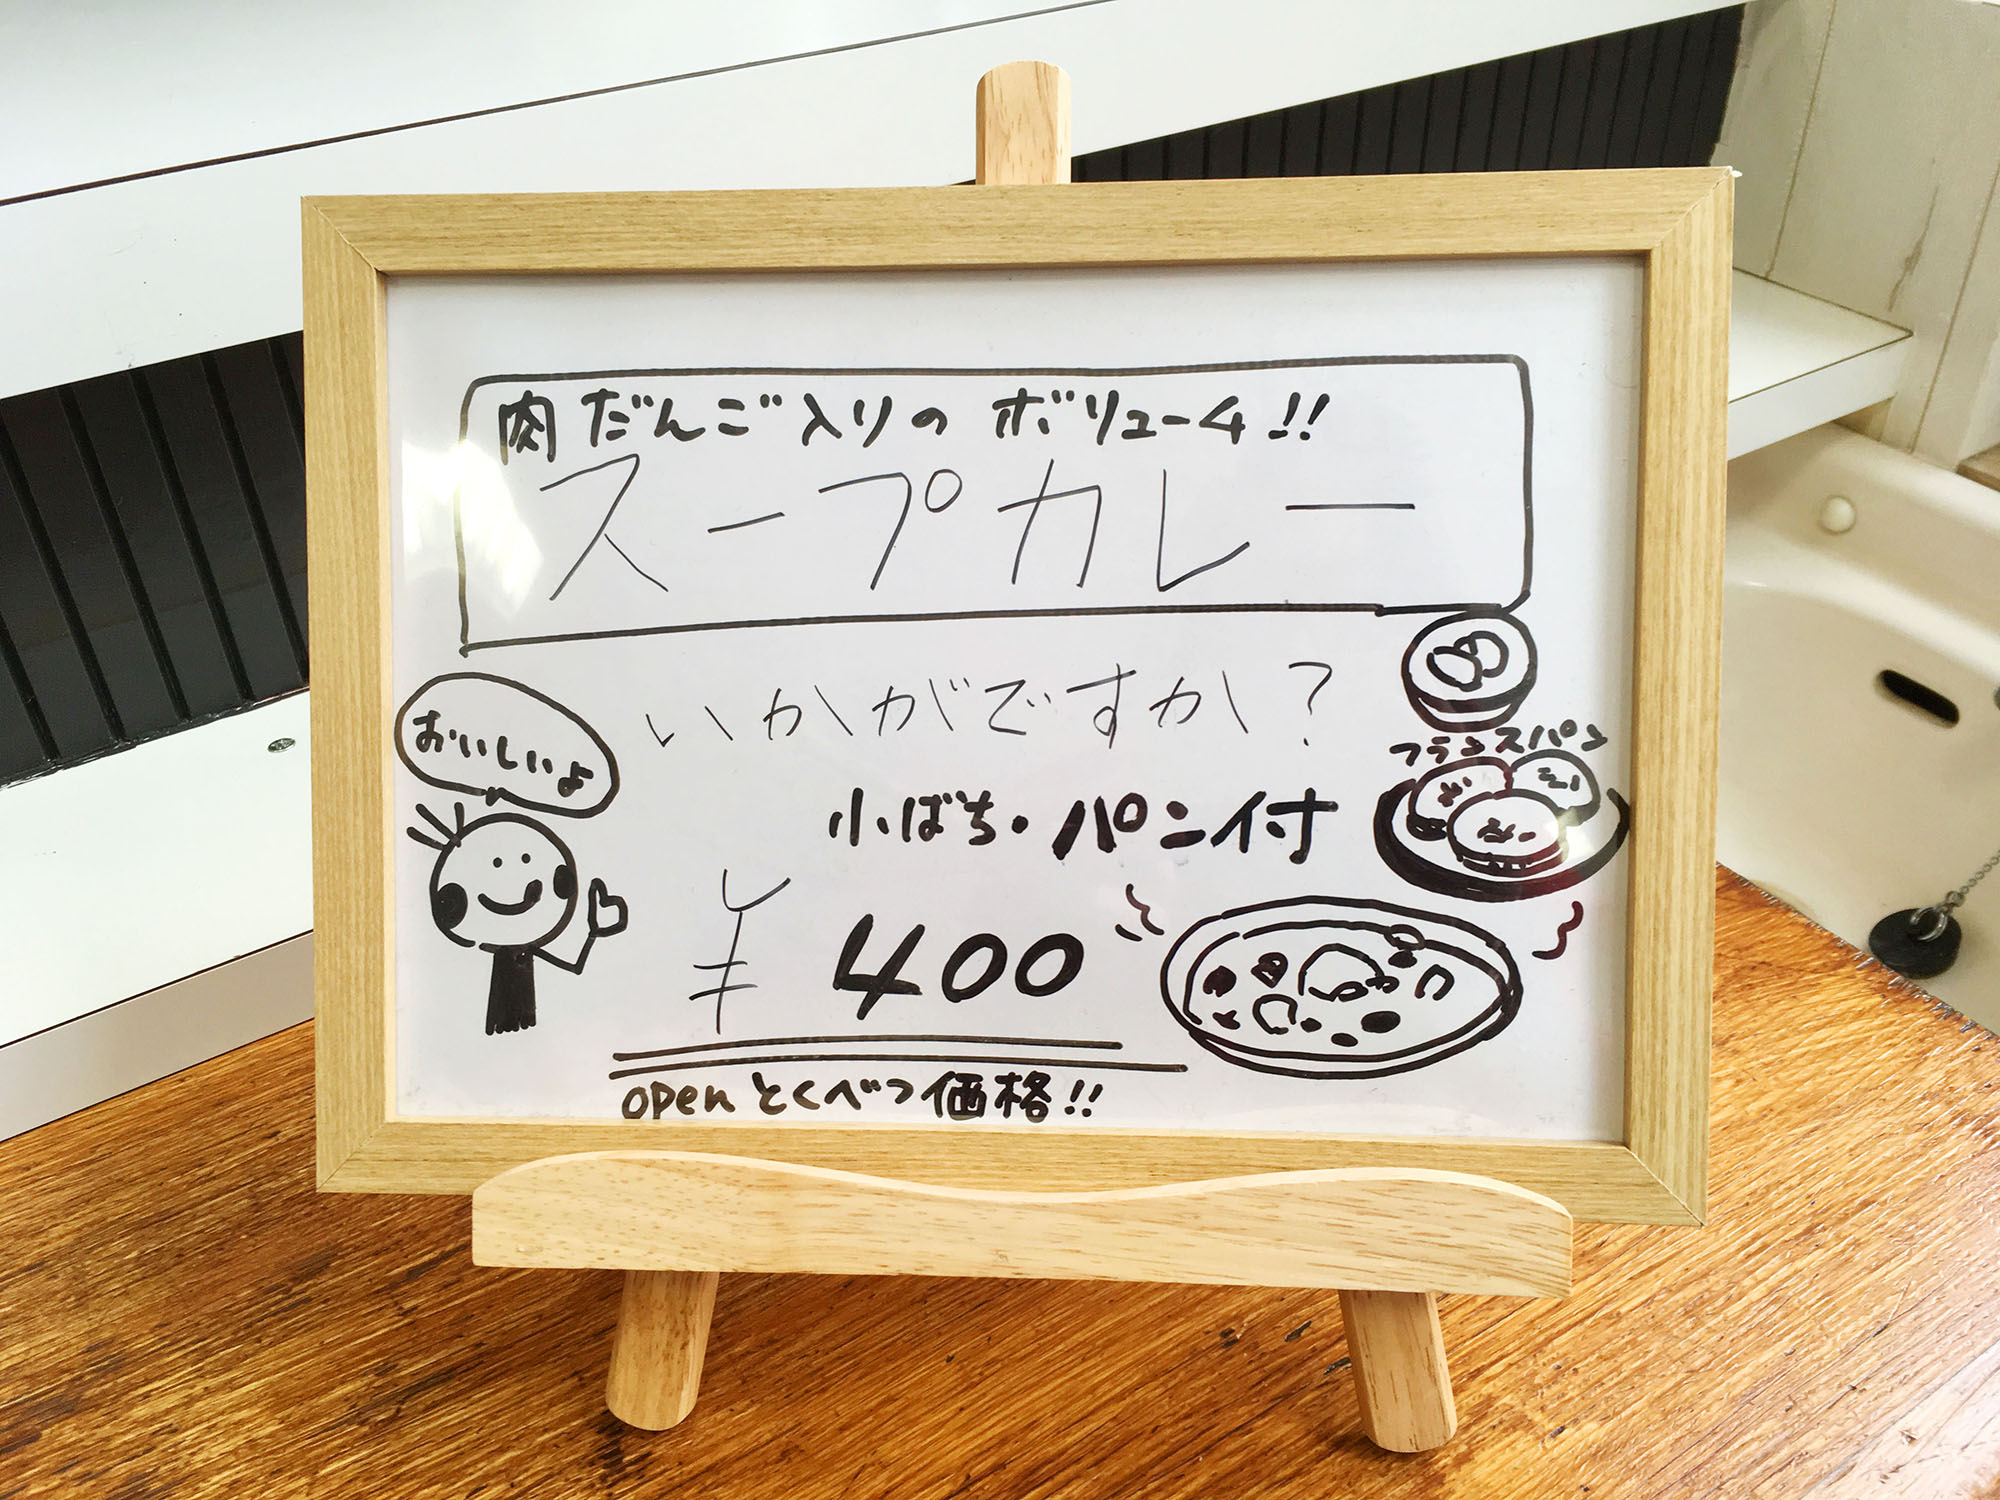 肉だんご入りのボリューム!!
スープカレー
いかがですか?
おいしいよ
フランスパン
小ばち・パン付
¥400
openとくべつ価格!!